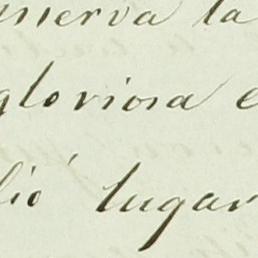 nserva la
gloriosa e
lió lugar